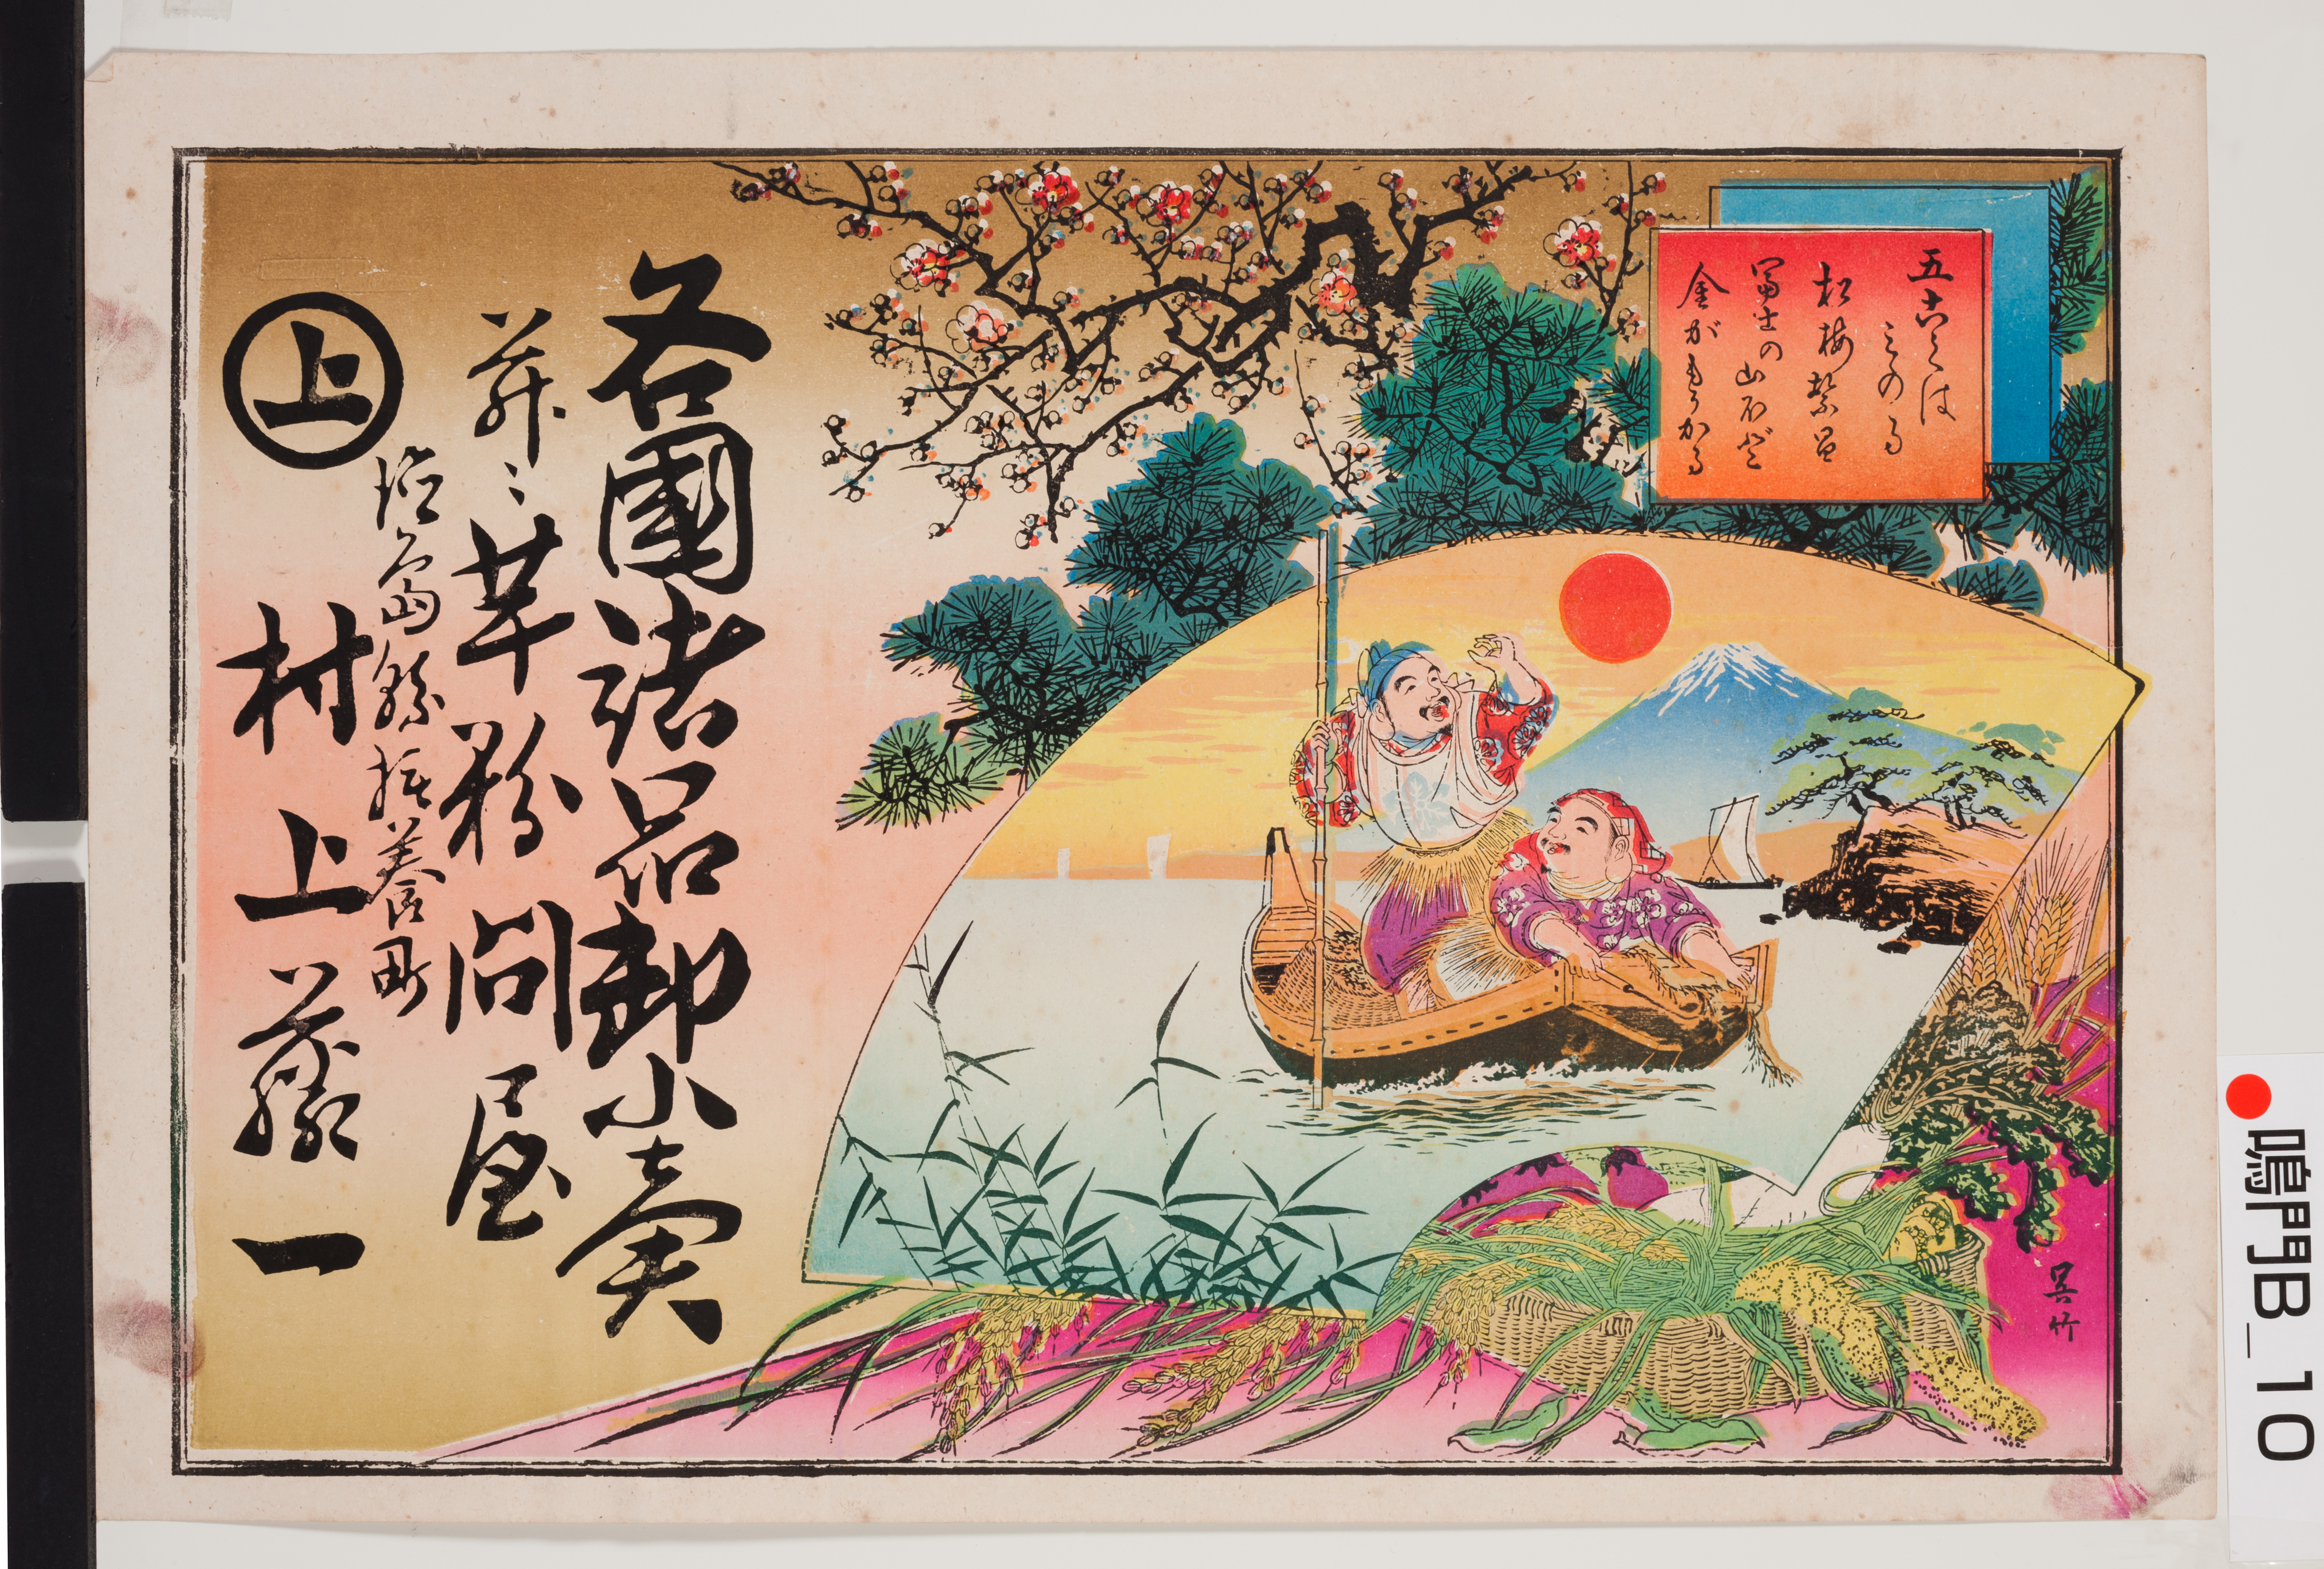 五こくは
みのる
松梅繁昌
冨士の山ほど
金がもうかる
各國諸品卸小賣
并ニ芋粉問屋
徳島縣撫養町
上
村上藤一
呉竹
鳴門B_10